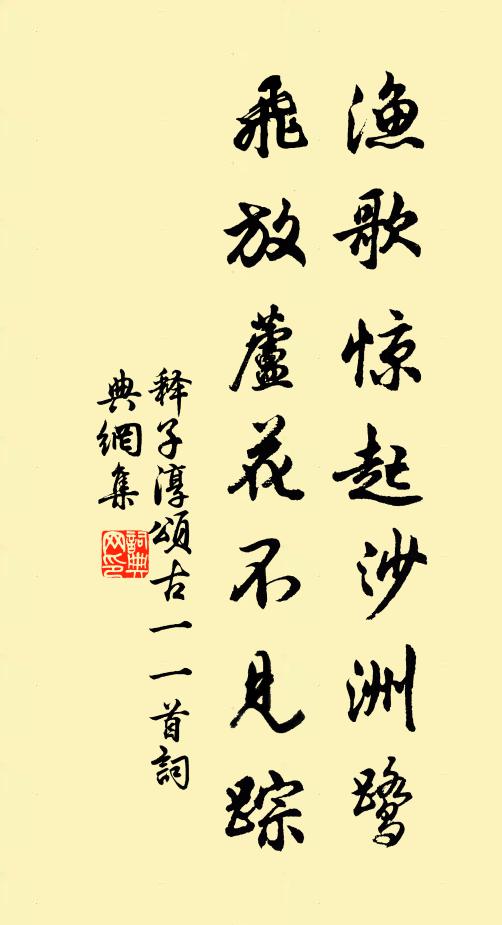 渔歌惊起沙洲鹭
飛放蘆花不见踪
释子淳頌古一一首詞
典網集
詞典网印